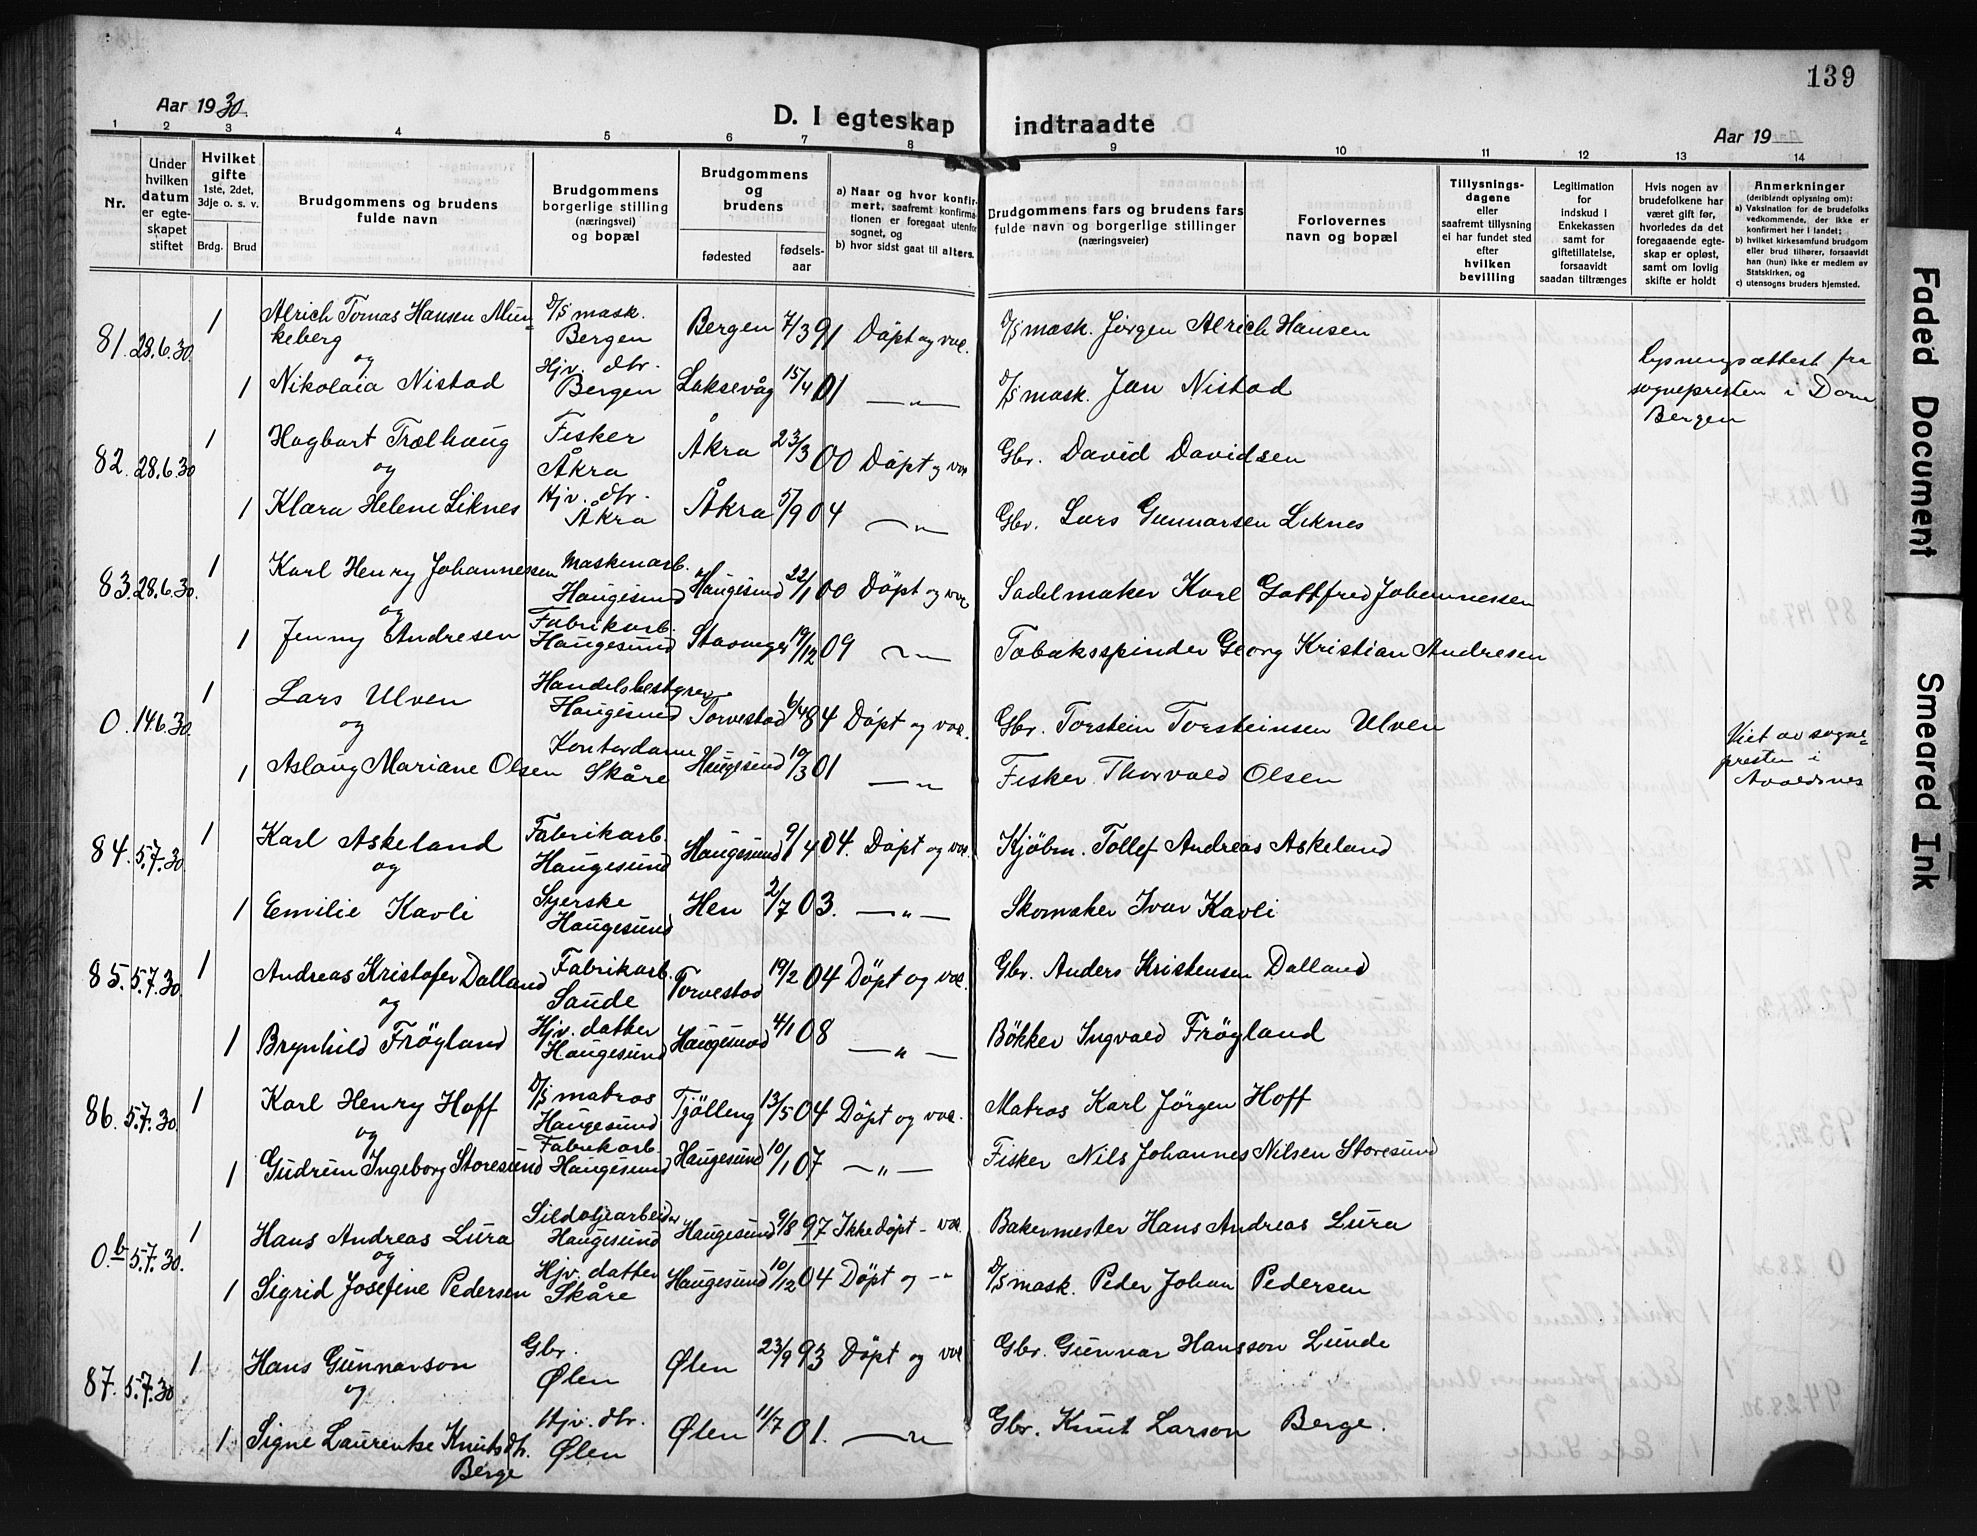 139
Aar 1930.
D. I egteskap indtraadte
Aar 19
1 2 3 4 5 6 7 8 9 10 11 12 13 14
Nr.
Under hvilken datum er egteskapet stiftet
Hvilket gifte 1ste, 2det, 3dje o. s. v.
Brdg. Brud
Brudgommens og brudens fulde navn
Brudgommens borgerlige stilling (næringsvei) og bopæl
Brudgommens og brudens
fødested
fødselsaar
a) Naar og hvor konfirmert, saafremt konfirmationen er foregaat utenfor sognet, og
b) hvor sidst gaat til alters.
Brudgommens fars og brudens fars fulde navn og borgerlige stillinger (næringsveier)
Forlovernes navn og bopæl
Tillysningsdagene eller saafremt tillysning ei har fundet sted efter hvilken bevilling
Legitimation for indskud i Enkekassen samt for giftetillatelse, forsaavidt saadan tiltrænges
Hvis nogen av brudefolkene har været gift før, hvorledes da det foregaaende egteskap er opløst, samt om lovlig skifte er holdt
Anmerkninger (deriblandt oplysning om):
a) Vaksination for de brudefolks vedkommende, der ikke er konfirmert her i landet;
b) hvilket kirkesamfund brudgom eller brud tilhører, forsaavidt han (hun) ikke er medlem av Statskirken, og
c) utensogns bruders hjemsted.
81. 28.6.30. 1 Alrich Tomas Hansen Munkeberg D/S mask. Bergen Bergen 7/3 91 Döpt og vac. D/S mask. Jörgen Alrich Hansen
og
1 Nikolaia Nistad Hjv. dtr. Bergen Laksevåg 15/4 01 —"— D/S mask. Jan Nistad
Lysningsattest fra sognepresten i Dom Bergen
82. 28.6.30 1 Hagbart Trælhaug Fisker Åkra Åkra 23/3 00 Döpt og vac Gbr. David Davidsen
og
1 Klara Helene Liknes Hjv. dtr. Åkra Åkra 5/9 04 —"— Gbr. Lars Gunnarsen Liknes
83. 28.6.30. 1 Karl Henry Johannessen Maskinarb. Haugesund Haugesund 22/1 00 Döpt og vac Sadelmaker Karl Gottfred Johannessen
og
1 Jenny Andresen Fabrikarb. Haugesund Stavanger 19/12 09 —"— Tobaksspinder Georg Kristian Andresen
0. 14.6.30. 1 Lars Ulven Handelsbestyrer Haugesund Torvestad 6/4 84 Döpt og vac. Gbr. Torstein Torsteinsen Ulven
og
1 Aslaug Mariane Olsen Kontordame Skåre Haugesund 10/3 01 —"— Fisker Thorvald Olsen
Viet av sognepresten i Avaldsnes
84. 5.7.30 1 Karl Askeland Fabrikarb. Haugesund Haugesund 9/4 04. Döpt og vac. Kjöbm. Tollef Andreas Askeland
og
1 Emilie Kavli Syerske Haugesund Hen 2/7 03. —"— Skomaker Ivar Kavli
85. 5.7.30 1 Andreas Kristofer Dalland Fabrikarb. Saude Torvestad 19/2 04 Döpt og vac. Gbr. Anders Kristensen Dalland
og
1 Brynhild Fröyland Hjv. datter Haugesund Haugesund 4/1 08 —"— Bökker Ingvald Fröyland
86. 5.7.30 1 Karl Henry Hoff D/S matros Haugesund Tjölling 13/5 04 Döpt og vac. Matros Karl Jörgen Hoff
og
1 Gudrun Ingeborg Storesund Fabrikarb. Haugesund Haugesund 10/1 07 —"— Fisker Nils Johannes Nilsen Storesund
0.b 5.7.30. 1 Hans Andreas Lura Sildoljearbeider Haugesund Haugesund 9/8 97 Ikke döpt - vac. Bakermester Hans Andreas Lura
og
1 Sigrid Josefine Pedersen Hjv. datter Skåre Haugesund 10/12 04 Döpt og -"- D/S mask. Peder Johan Pedersen
87. 5.7.30 1 Hans Gunnarson Gbr. Ølen Ølen 23/9 93 Döpt og vac Gbr. Gunnar Hansson Lunde
og
1 Signe Laurentse Knutsdtr. Berge Hjv. dtr. Ølen Ølen 11/7 01. —"— Gbr. Knut Larson Berge.
Faded Document
Smeared Ink